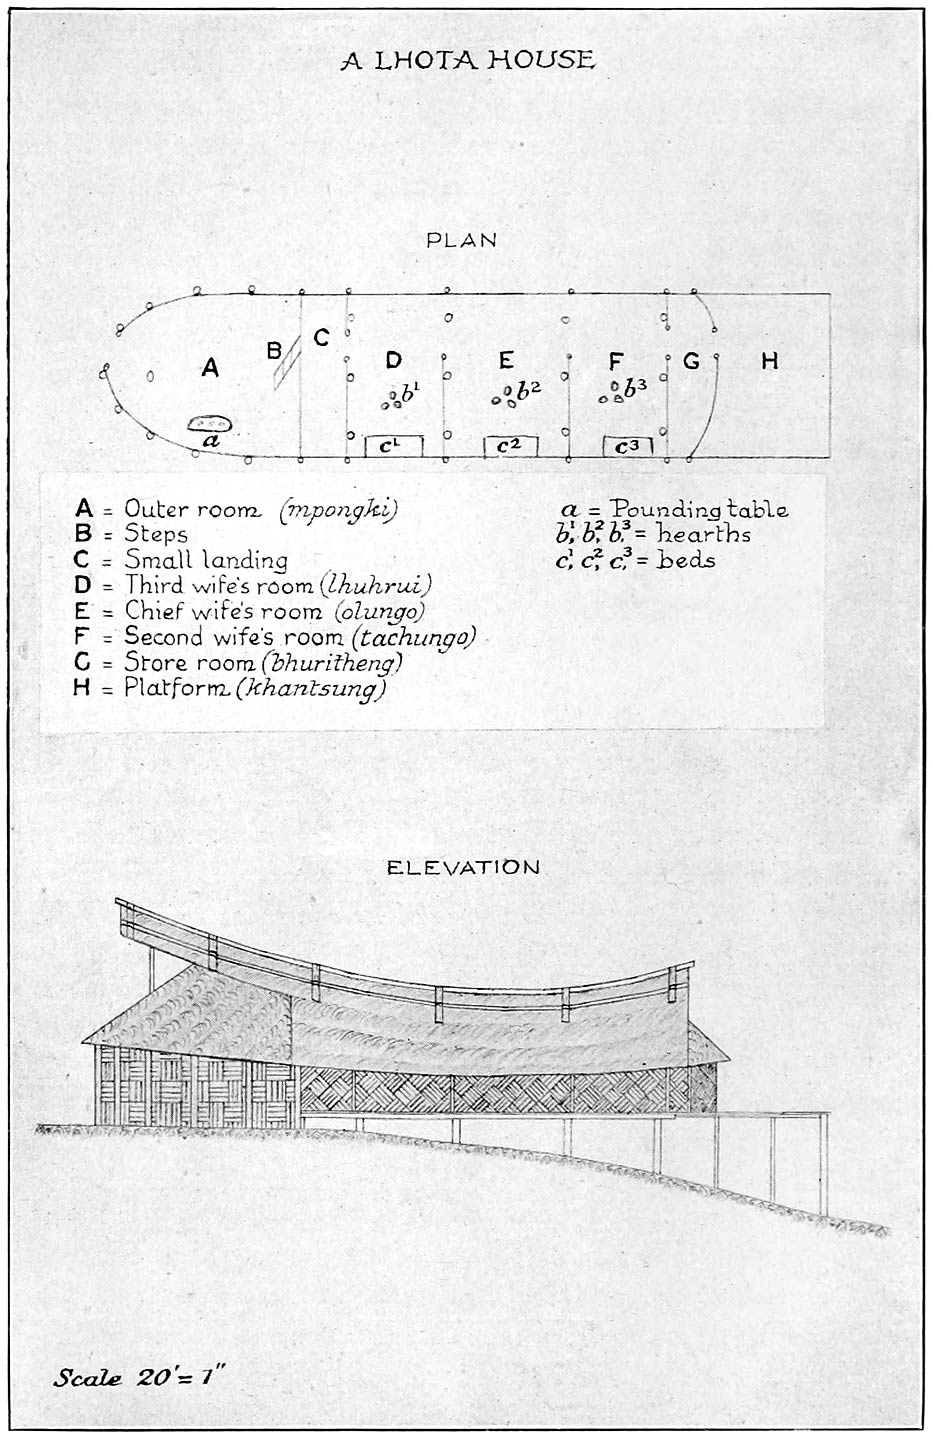 A LHOTA HOUSE
PLAN
A
B
C
D
E
F
G
H
a
b¹
b²
b³
c¹
c²
c³
A = Outer room (mpongki)
B = Steps
C = Small landing
D = Third wife's room (lhuhrui)
E = Chief wife's room (olungo)
F = Second wife's room (tachungo)
G = Store room (bhuritheng)
H = Platform (khantsung)
a = Pounding table
b¹, b², b³ = hearths
c¹, c², c³ = beds
ELEVATION
Scale 20' = 1"